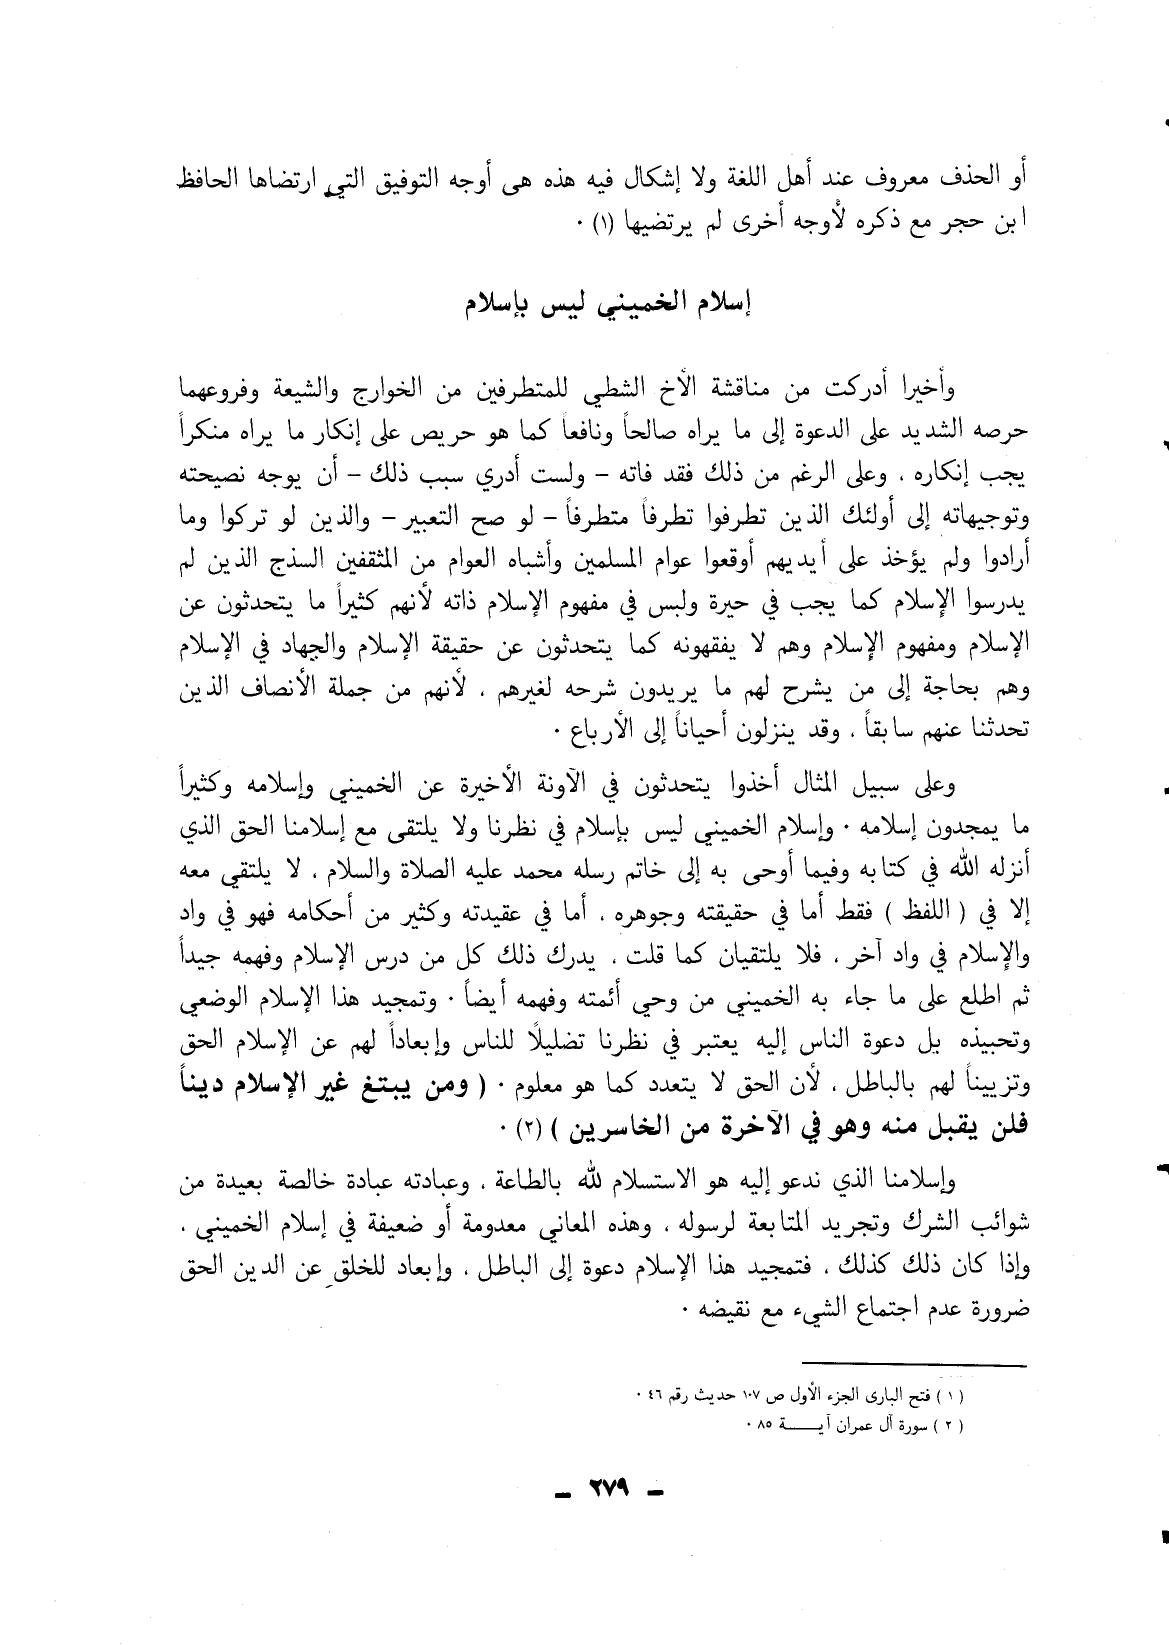 أو الحذف معروف عند أهل اللغة ولا إشكال فيه هذه هى أوجه التوفيق التي ارتضاها الحافظ
ابن حجر مع ذكره لأوجه أخرى لم يرتضيها (١) ٠
إسلام الخميني ليس بإسلام
وأخيرا أدركت من مناقشة الأخ الشطي للمتطرفين من الخوارج والشيعة وفروعهما
حرصه الشديد على الدعوة إلى ما يراه صالحاً ونافعاً كما هو حريص على إنكار ما يراه منكراً
يجب إنكاره ، وعلى الرغم من ذلك فقد فاته – ولست أدري سبب ذلك – أن يوجه نصيحته
وتوجيهاته إلى أولئك الذين تطرفوا تطرفاً متطرفاً – لو صح التعبير – والذين لو تركوا وما
أرادوا ولم يؤخذ على أيديهم أوقعوا عوام المسلمين وأشباه العوام من المثقفين السذج الذين لم
يدرسوا الإسلام كما يجب في حيرة ولبس في مفهوم الإسلام ذاته لأنهم كثيراً ما يتحدثون عن
الإسلام ومفهوم الإسلام وهم لا يفقهونه كما يتحدثون عن حقيقة الإسلام والجهاد في الإسلام
وهم بحاجة إلى من يشرح لهم ما يريدون شرحه لغيرهم ، لأنهم من جملة الأنصاف الذين
تحدثنا عنهم سابقاً ، وقد ينزلون أحياناً إلى الأرباع ٠
وعلى سبيل المثال أخذوا يتحدثون في الآونة الأخيرة عن الخميني وإسلامه وكثيراً
ما يمجدون إسلامه ٠ وإسلام الخميني ليس بإسلام في نظرنا ولا يلتقى مع إسلامنا الحق الذي
أنزله الله في كتابه وفيما أوحى به إلى خاتم رسله محمد عليه الصلاة والسلام ، لا يلتقي معه
إلا في ( اللفظ ) فقط أما في حقيقته وجوهره ، أما في عقيدته وكثير من أحكامه فهو في واد
والإسلام في واد آخر ، فلا يلتقيان كما قلت ، يدرك ذلك كل من درس الإسلام وفهمه جيداً
ثم اطلع على ما جاء به الخميني من وحي أئمته وفهمه أيضاً ٠ وتمجيد هذا الإسلام الوضعي
وتحبيذه بل دعوة الناس إليه يعتبر في نظرنا تضليلًا للناس وإبعاداً لهم عن الإسلام الحق
وتزييناً لهم بالباطل ، لأن الحق لا يتعدد كما هو معلوم ٠ ( ومن يبتغ غير الإسلام ديناً
فلن يقبل منه وهو في الآخرة من الخاسرين ) (٢) ٠
وإسلامنا الذي ندعو إليه هو الاستسلام لله بالطاعة ، وعبادته عبادة خالصة بعيدة من
شوائب الشرك وتجريد المتابعة لرسوله ، وهذه المعاني معدومة أو ضعيفة في إسلام الخميني ،
وإذا كان ذلك كذلك ، فتمجيد هذا الإسلام دعوة إلى الباطل ، وإبعاد للخلق عن الدين الحق
ضرورة عدم اجتماع الشيء مع نقيضه ٠
( ١ ) فتح البارى الجزء الأول ص ١٠٧ حديث رقم ٤٦ ٠
( ٢ ) سورة آل عمران آيـــــة ٨٥ ٠
– ٢٧٩ –